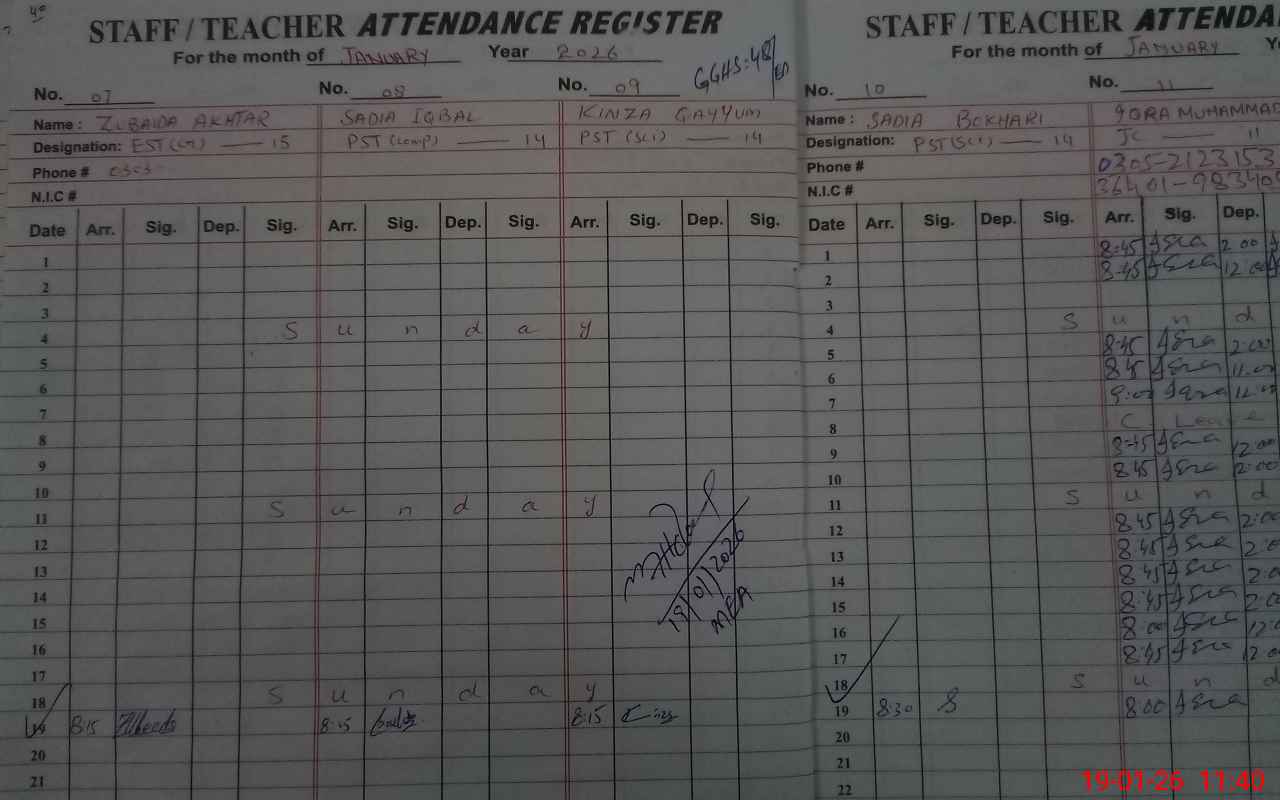 40
STAFF / TEACHER ATTENDANCE REGISTER
For the month of JANUARY Year 2026
GGHS:48/ED
No. 07 No. 08 No. 09
Name : ZUBAIDA AKHTAR SADIA IQBAL KINZA QAYYUM
Designation: EST(CT) — 15 PST (comp) — 14 PST (Sci) — 14
Phone # 0303-
N.I.C #
Date Arr. Sig. Dep. Sig. Arr. Sig. Dep. Sig. Arr. Sig. Dep. Sig.
1
2
3
4 S u n d a y
5
6
7
8
9
10
11 S u n d a y
12
13
14
15
16
17
18 S u n d a y
19 8:15 8:15
20
21
19/01/2026
MEA
STAFF / TEACHER ATTENDA
For the month of JANUARY Y
No. 10 No. 11
Name : SADIA BOKHARI IQRA MUHAMMAD
Designation: PST (Sci) — 14 JC — 11
Phone # 0305-2123153
N.I.C # 36401-98340
Date Arr. Sig. Dep. Sig. Arr. Sig. Dep.
1 8:45 Iqra 2:00
2 8:45 Iqra 12:00
3
4 S u n d
5 8:45 Iqra 2:00
6 8:45 Iqra 11:00
7 9:00 Iqra
8 C Leave
9 8:45 Iqra 12:00
10 8:45 Iqra 2:00
11 S u n d
12 8:45 Iqra 2:00
13 8:45 Iqra 2:0
14 8:45 Iqra 2:0
15 8:45 Iqra 2:00
16 8:00 Iqra 12:0
17 8:45 Iqra 2:00
18 S u n d
19 8:30 8:00 Iqra
20
21
22
19-01-26 11:40